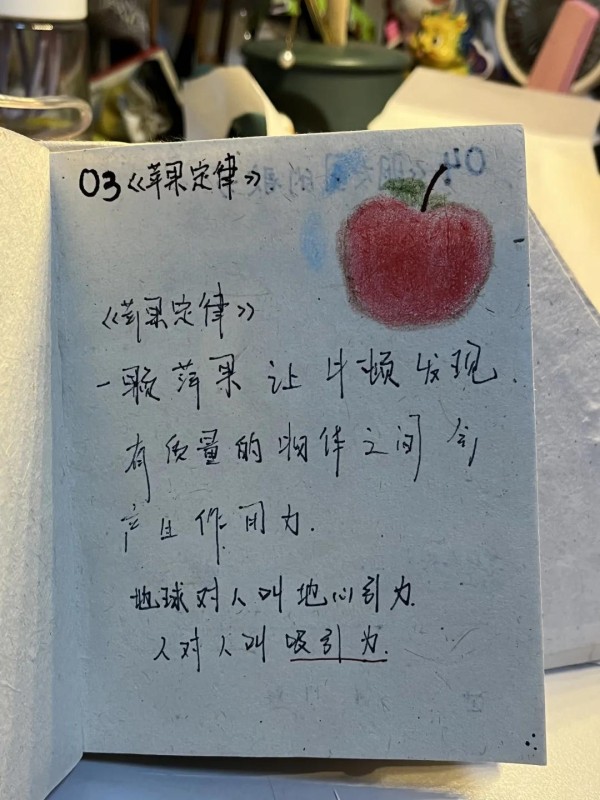 03《苹果定律》
《苹果定律》
一颗苹果让牛顿发现
有质量的物体之间会
产生作用力.
地球对人叫地心引力.
人对人叫吸引力.